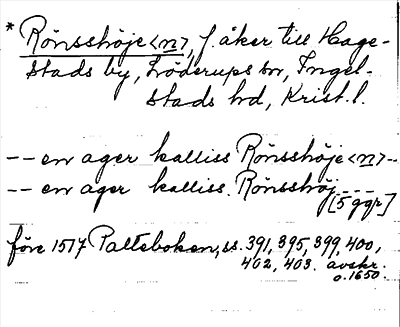 * Rönsshöje<n>, f. åker till Hage-
stads by, Löderups sn, Ingel-
stads hd, Krist. l.
-- en ager kalliss Rönsshöje<n>--
-- en ager kalliss. Rönsshöj---
[5 ggr]
före 1517 Palteboken, ss. 391, 395, 399, 400,
402, 403. avskr.
o. 1650.